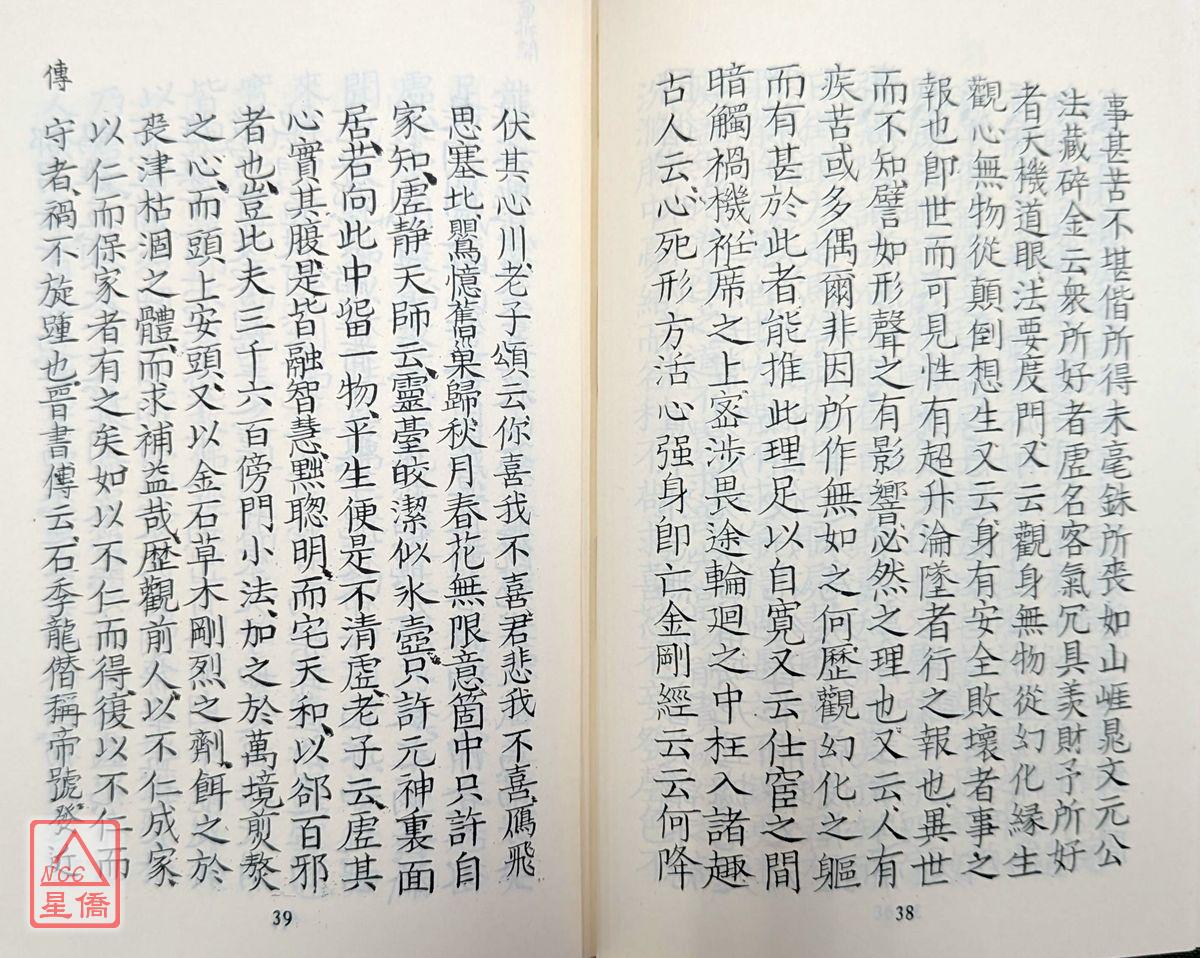 事甚苦不堪偕所得未毫銖所喪如山崕晁文元公
法藏碎金云衆所好者虛名客氣冗具羨財予所好
者天機道眼法要度門又云觀身無物從幻化緣生
觀心無物從顛倒想生又云身有安全敗壞者事之
報也卽世而可見性有超升淪墜者行之報也異世
而不知譬如形聲之有影響必然之理也又云人有
疾苦或多偶爾非因所作無如之何歷觀幻化之軀
而有甚於此者能推此理足以自寬又云仕宦之間
暗觸禍機袵席之上密涉畏途輪迴之中枉入諸趣
古人云心死形方活心强身卽亡金剛經云云何降
38
伏其心川老子頌云你喜我不喜君悲我不喜鴈飛
思塞北鷰憶舊巢歸秋月春花無限意箇中只許自
家知虛静天師云靈臺皎潔似氷壺只許元神裏面
居若向此中留一物平生便是不清虛老子云虛其
心實其腹是皆融智慧黜聰明而宅天和以郤百邪
者也豈比夫三千六百傍門小法加之於萬境煎熬
之心而頭上安頭又以金石草木剛烈之劑餌之於
喪津枯涸之體而求補益哉歷觀前人以不仁成家
乃以仁而保家者有之矣如以不仁而得復以不仁而
傳
守者禍不旋踵也晋書傳云石季龍僭稱帝號發近
39
NCC
星僑